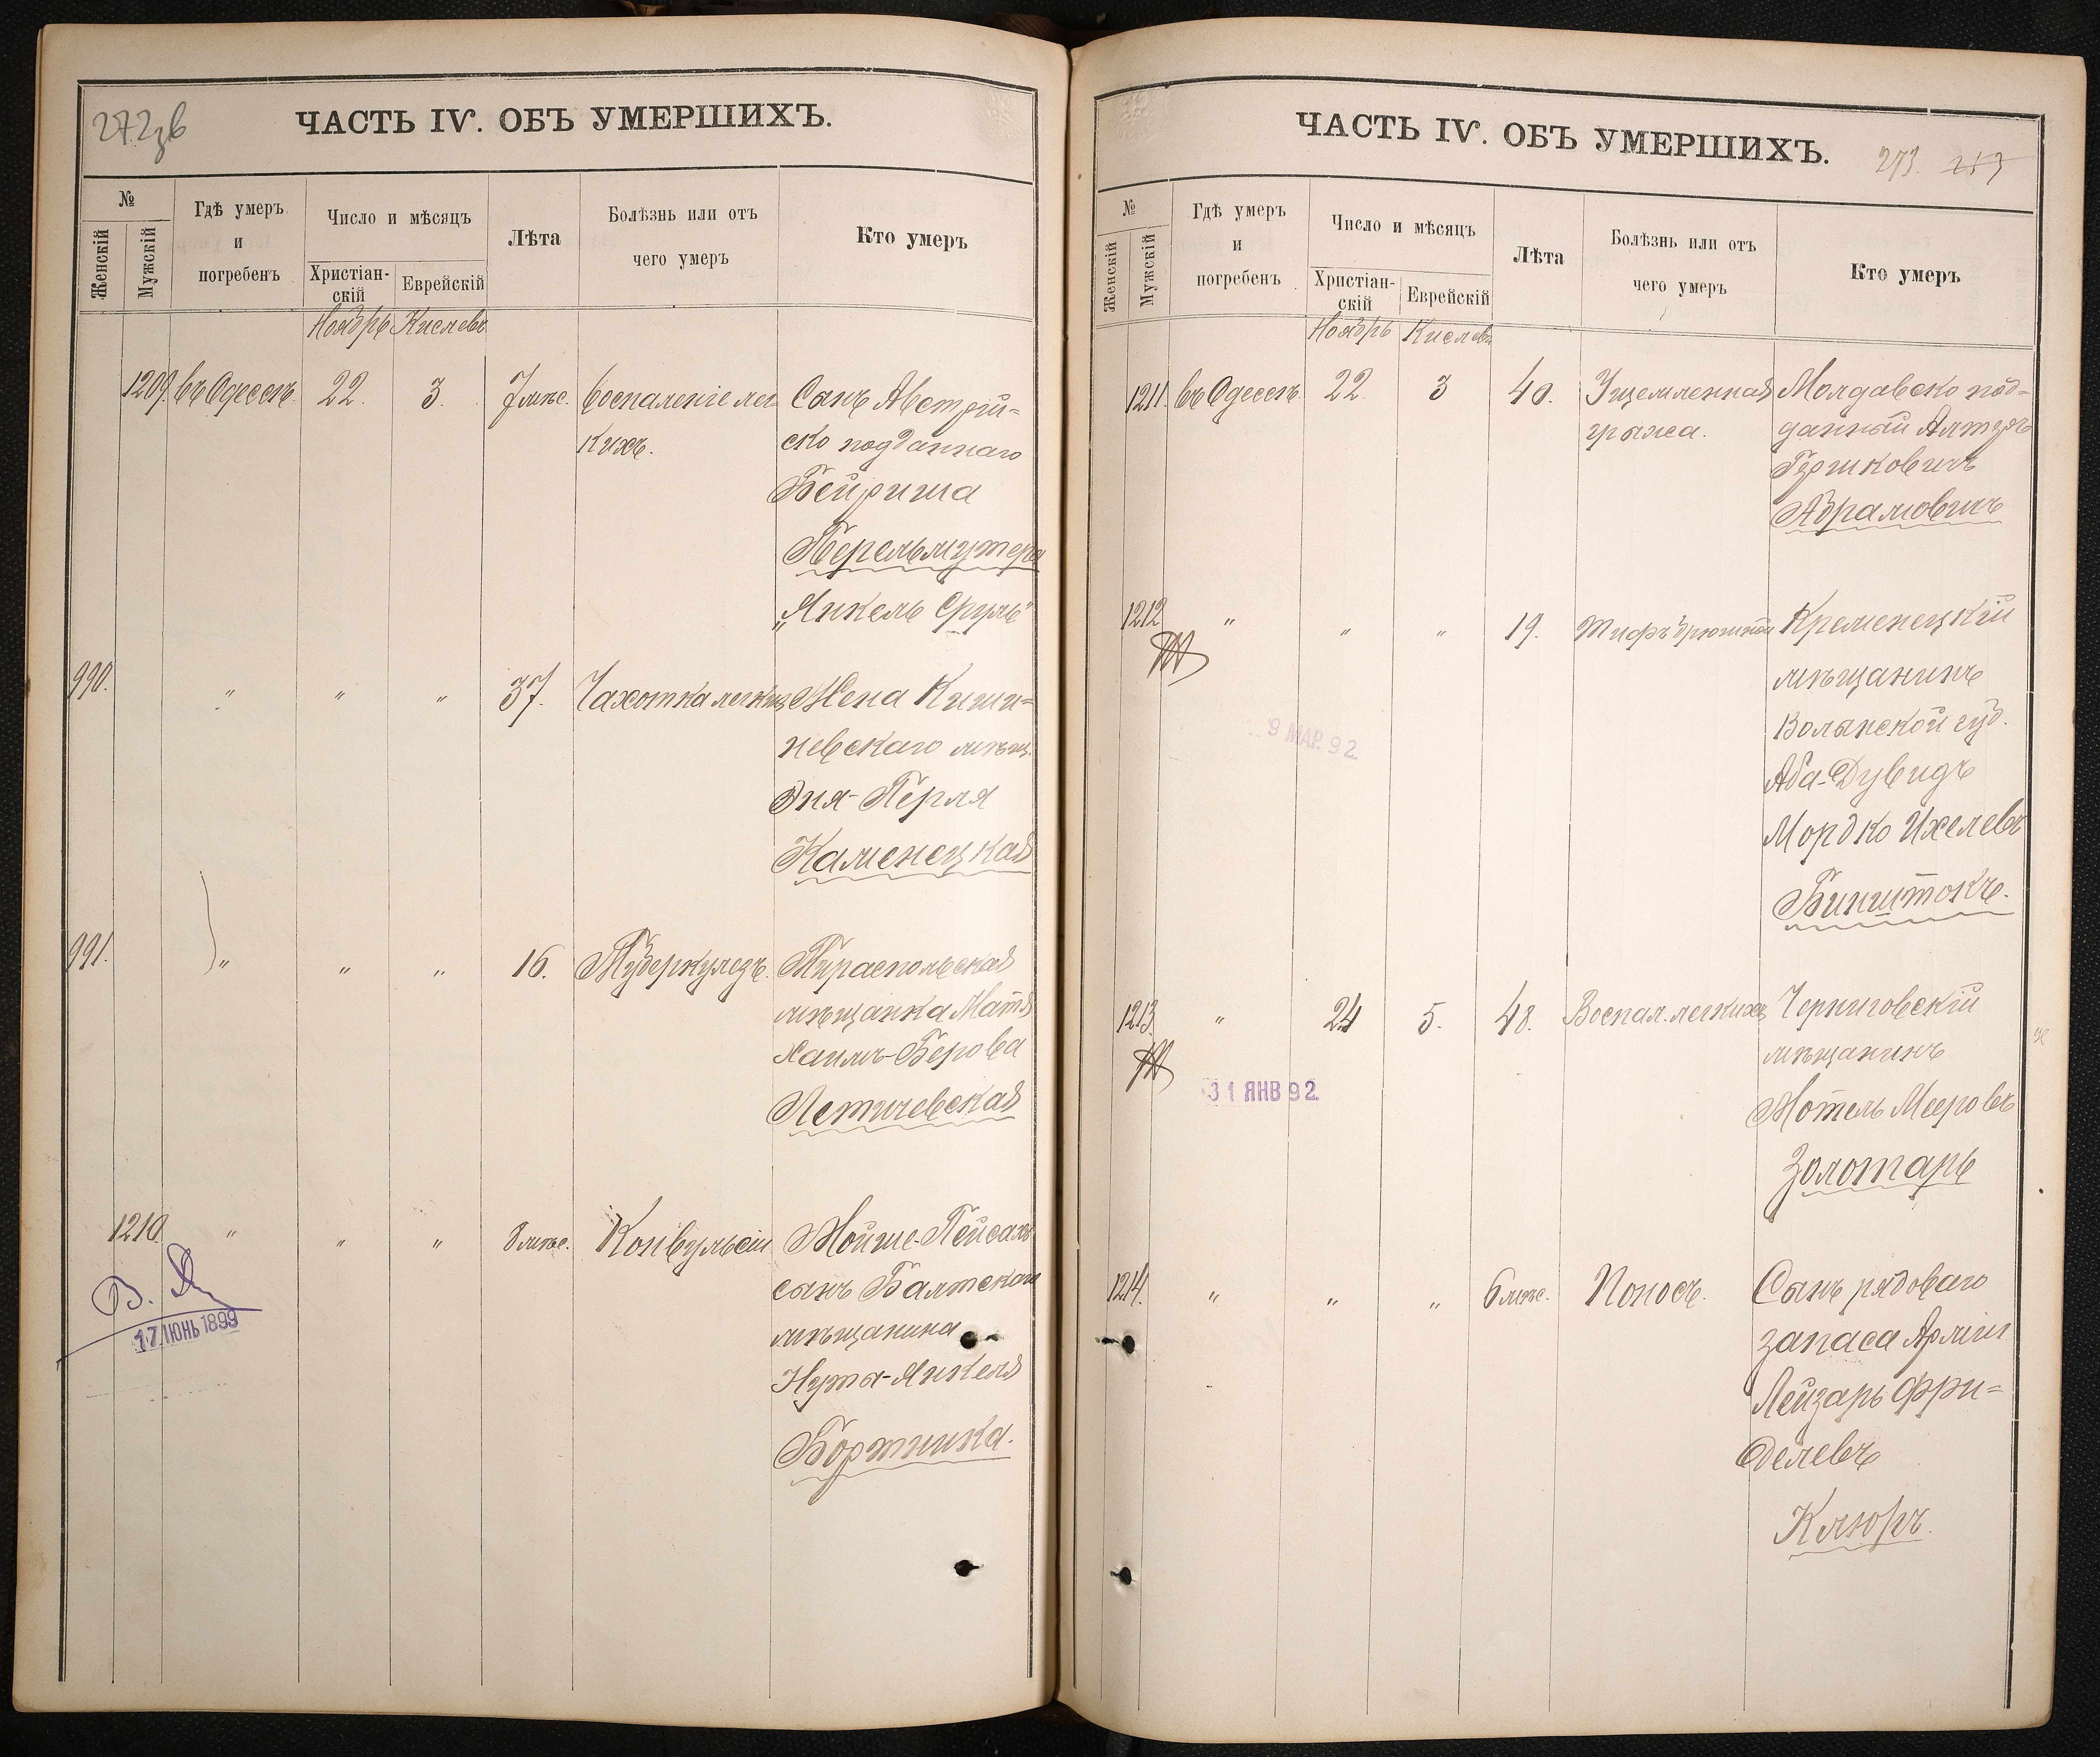 272 об
ЧАСТЬ IV. ОБЪ УМЕРШИХЪ.
№
Женскій
Мужскій
Гдѣ умеръ
и
погребенъ
Число и мѣсяцъ
Христіан-
скій
Еврейскій
Лѣта
Болѣзнь или отъ
чего умеръ
Кто умеръ
Ноябрь Кислевъ
1209. въ Одессѣ. 22. 3. 7 мѣс. Воспаленіе лег- Сынъ Австрій=
кихъ. ско подданнаго
Бейриша
Перельмутера
„Янкель Сруль"
990. " " " 37. Чахотка легкихъ Жена Киши=
невскаго мѣщ.
Эня-Перля
Каменецкая
991. " " " 16. Туберкулезъ. Тираспольская
мѣщанка Матя
Хаимъ-Берова
Летичевская
1210. " " " 8 мѣс. Конвульсіи Мойше-Пейсахъ
сынъ Балтскаго
мѣщанина
Нута-Янкеля
Бортника.
17 ІЮНЬ 1899
ЧАСТЬ IV. ОБЪ УМЕРШИХЪ.
273. 253
№
Женскій
Мужскій
Гдѣ умеръ
и
погребенъ
Число и мѣсяцъ
Христіан-
скій
Еврейскій
Лѣта
Болѣзнь или отъ
чего умеръ
Кто умеръ
Ноябрь Кислевъ
1211. въ Одессѣ. 22. 3 40. Ущемленная Молдавско под=
грыжа. данный Алтеръ
Гершковичъ
Абрамовичъ
1212 " " " 19. Тифъ брюшной Кременецкій
мѣщанинъ
Волынской губ.
Аба-Дувидъ
Мордко Ихелевъ
Бинштокъ.
9 МАР. 92
1213. " 24 5. 48. Воспал. легкихъ Черниговскій
мѣщанинъ
Мотель Мееровъ
Золотарь
31 ЯНВ 92
1214. " " " 6 мѣс. Поносъ. Сынъ рядоваго
запаса Арміи
Лейзарь Фри=
делевъ
Клюръ.